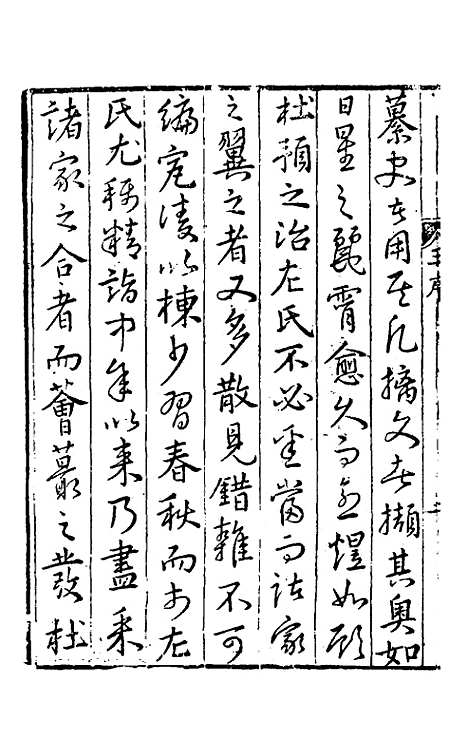 纂史者用其凡摛文者擷其奥如
日星之麗霄愈久而愈煜如顧
杜預之治左氏不必盡當而諸家
之翼之者又多散見錯雜不可
編宛陵以棟少習春秋而於左
氏尤稱精詣中年以來乃盡采
諸家之合者而薈蕞之發杜